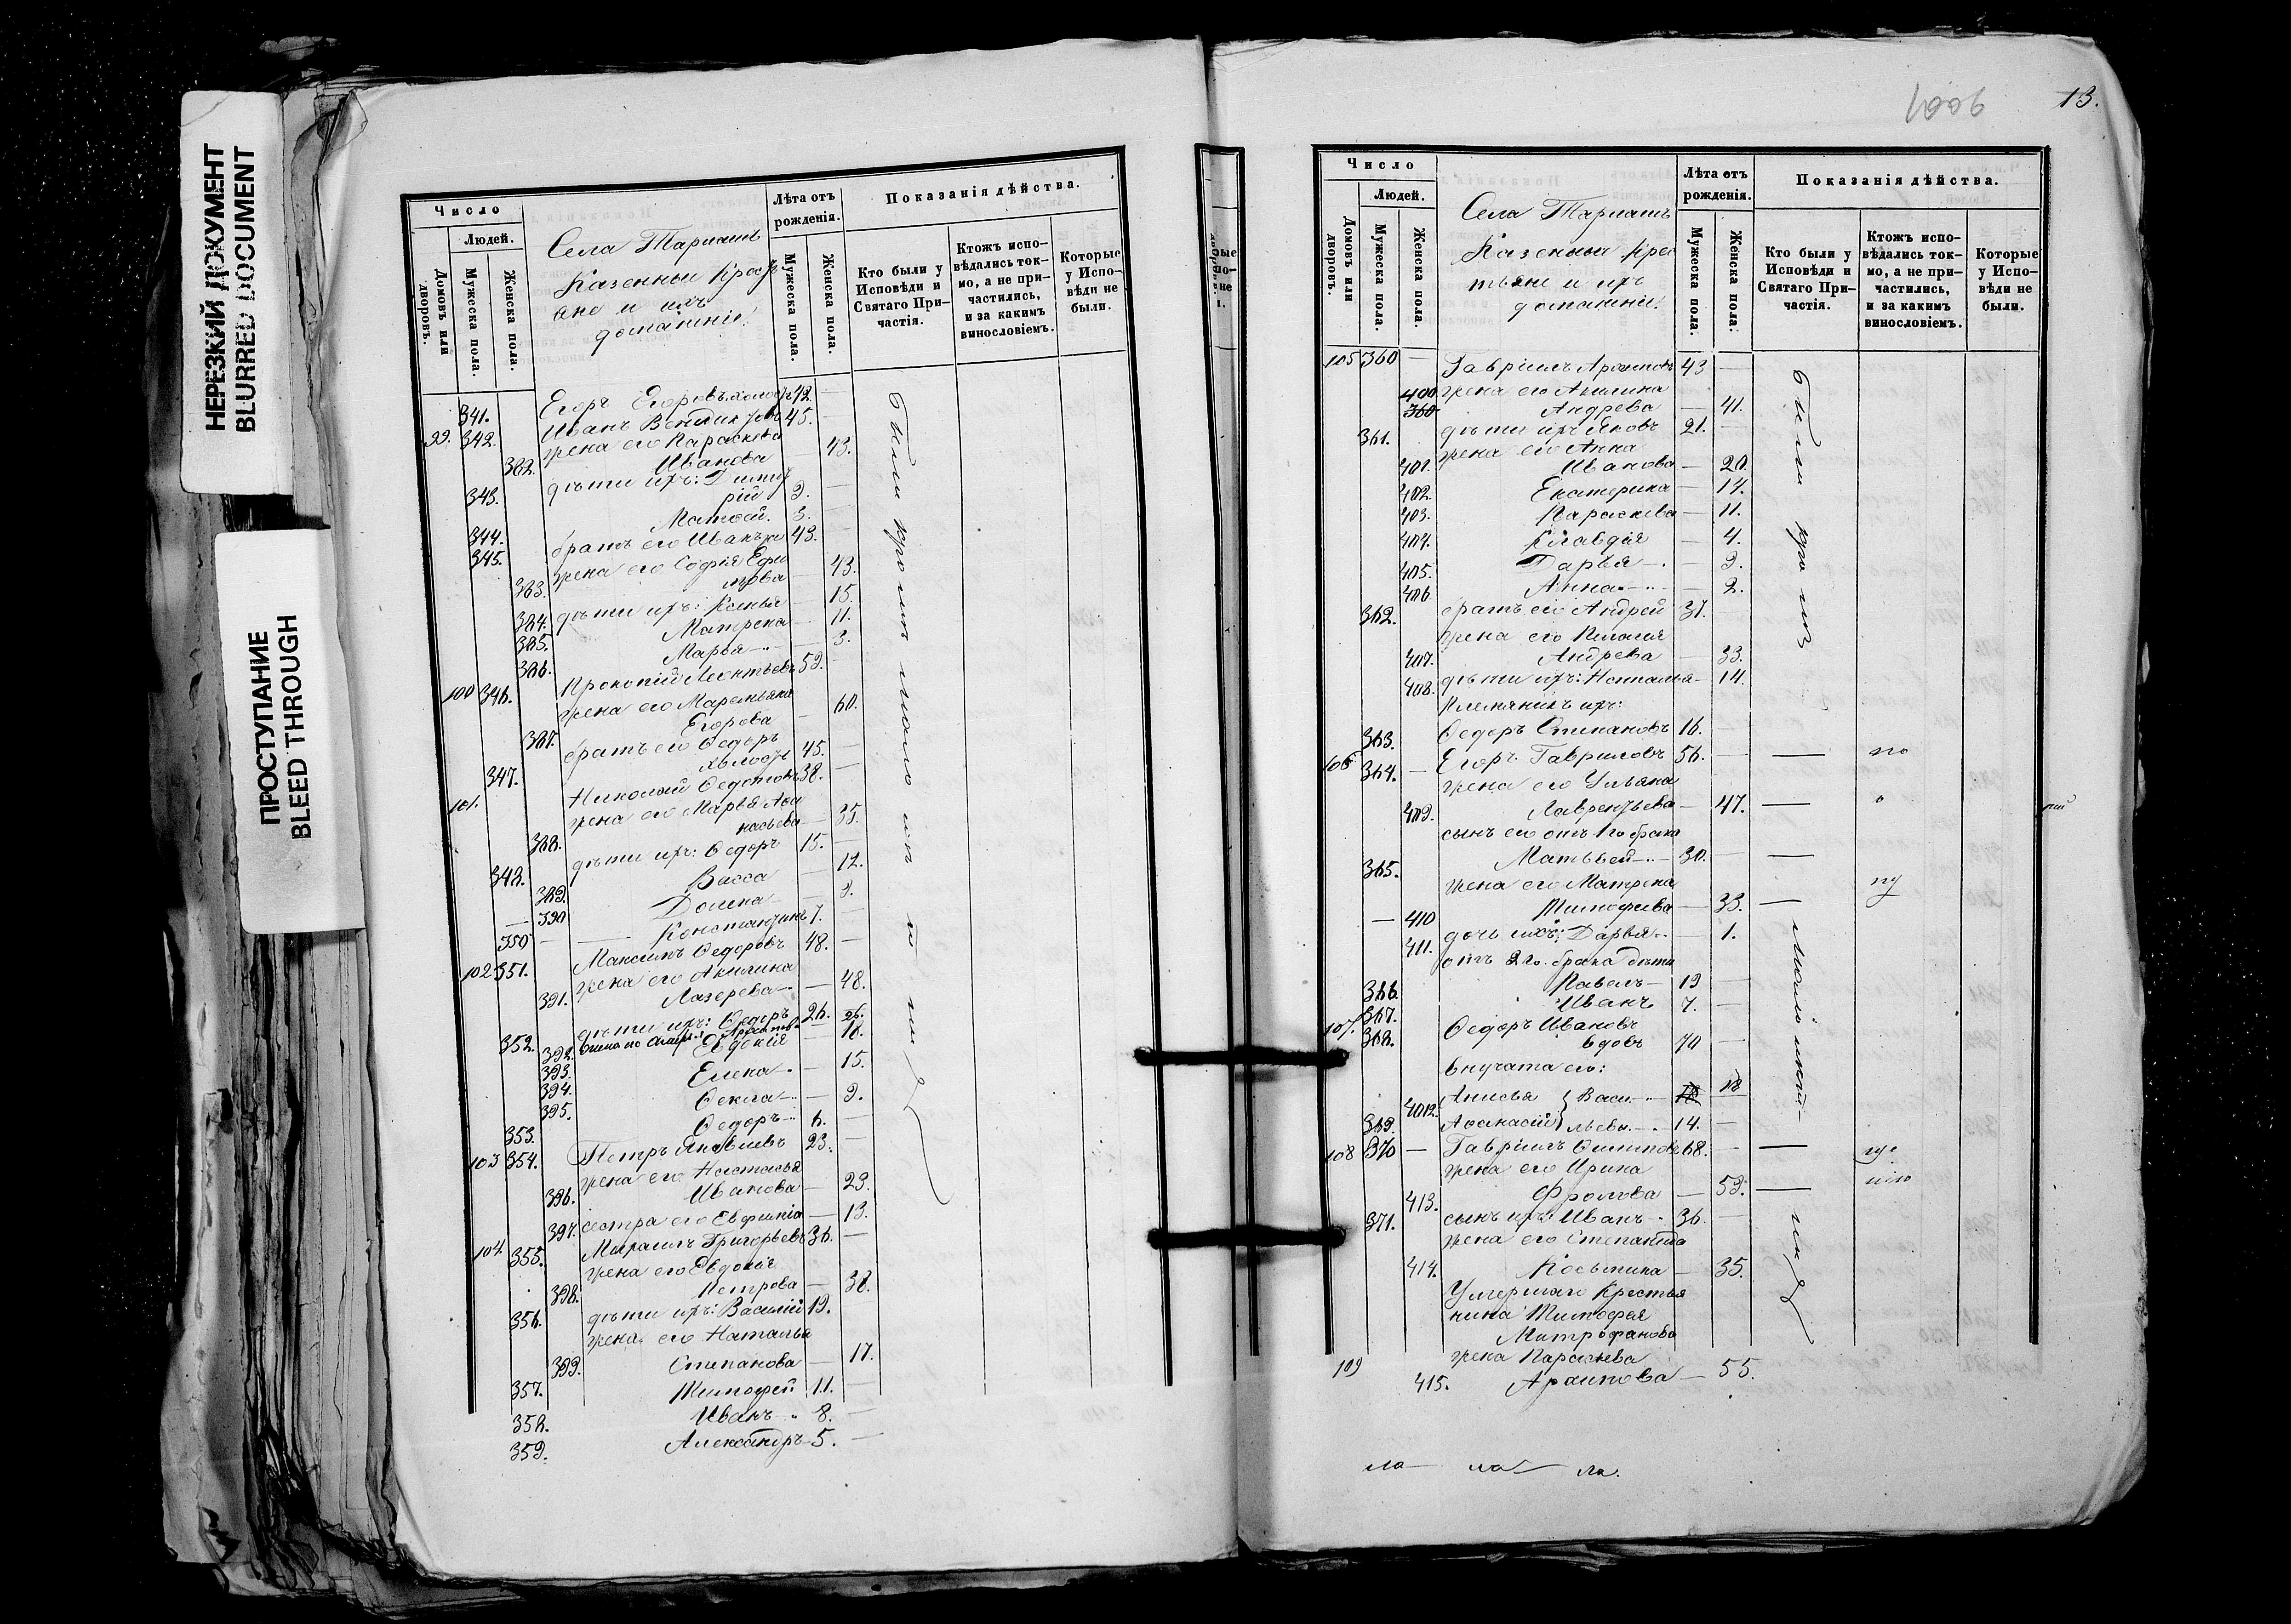 НЕРЕЗКИЙ ДОКУМЕНТ
BLURRED DOCUMENT
ПРОСТУПАНИЕ
BLEED THROUGH
Число
Людей.
Домовъ или дворовъ.
Мужеска пола.
Женска пола.
Села
Казенныи
ане и ихъ
домашніе:
Лѣта отъ рожденія.
Мужеска пола.
Женска пола.
Показанія дѣйства.
Кто были у Исповѣди и Святаго Причастія.
Ктожъ исповѣдались токмо, а не причастились, и за какимъ винословіемъ.
Которые у Исповѣди не были.
341. Егоръ Егоровъ холостъ 42. —
99. 342. Иванъ 45. —
жена его Параскева
382. Иванова — 43.
дѣти ихъ: Димит
343. рій 9. —
344. Матѳей. 3. —
345. братъ его Иванъ 43. —
жена его Софія Ефи
383. мова — 43.
384. дѣти ихъ: Ксенья — 15.
385. Матрена — 11.
386. Марья — 3.
100 346. Прокопій Леонтьевъ 59. —
жена его Маремьяна
387. Егорова — 60.
братъ его Ѳедоръ
347. холостъ 45. —
101. Николай Ѳедотовъ 38. —
жена его Марья Аѳа
388. насьева — 35.
348. дѣти ихъ: Ѳедоръ 15. —
389. Васса — 12.
— 390 Домна — 9.
350 — Константинъ 7. —
102 351. Максимъ Ѳедоровъ 48. —
жена его Акилина
391. Лазерева — 48.
352. дѣти ихъ: Ѳедоръ 26. 26.
392. Евдокія — 18.
393.
394. Елена — 15.
395. Ѳекла — 9.
353. Ѳедоръ 6. —
103 354. Петръ Яковлевъ 23. —
жена его Настасья
396. Иванова — 23.
397. сестра его Евфимія — 13.
104. 355. Михаилъ Григорьевъ 36. —
жена его Евдокія
398. Петрова — 38.
356. дѣти ихъ: Василій 19.
жена его Наталья
399. Степанова — 17.
357. Тимофей 11. —
358. Иванъ 8. —
359. Александръ 5. —
13.
Число
Людей.
Домовъ или дворовъ.
Мужеска пола.
Женска пола.
Села
Казенныи Крес
тьяне и ихъ
домашніе:
Лѣта отъ рожденія.
Мужеска пола.
Женска пола.
Показанія дѣйства.
Кто были у Исповѣди и Святаго Причастія.
Ктожъ исповѣдались токмо, а не причастились, и за какимъ винословіемъ.
Которые у Исповѣди не были.
105 360 — Гавріилъ 43 —
400 жена его Акилина
360 Андрева — 41.
361. дѣти ихъ Яковъ 21. —
жена его Анна
401. Иванова — 20.
402. Екатерина — 14.
403. Параскева — 11.
404. Клавдія — 4.
405. Дарья — 3.
406 Анна — 2.
362. братъ его Андрей 37.
жена его Пелагія
407. Андрева — 33.
408. дѣти ихъ: Наталья — 14.
племянникъ ихъ:
363. Ѳедоръ Степановъ 16. —
106 364. — Егоръ Гавриловъ 56. — —
жена его Ульяна
409. Лаврентьева — 47. —
сынъ его отъ 1го брака
365. Матвей 30. — —
жена его Матрена
— 410 Тимофева — 33. —
411. дочь ихъ: Дарья — 1.
отъ 2го брака дѣти
366. Павелъ 19 —
367. Иванъ 7. —
107. 368. Ѳедоръ Ивановъ
вдовъ 70 —
внучата его:
4012. Анисья } Васи 18
369. Аѳанасій } льевы 14. —
108 370 — Гавріилъ 68. — —
жена его Ирина
413. Фролова — 59. —
371. сынъ ихъ: Иванъ 36. —
жена его Степанида
414. Косьмина — 35.
Умершаго Крестья
нина Тимофея
Митрофанова
109 жена Параскева
415. Архипова — 55.